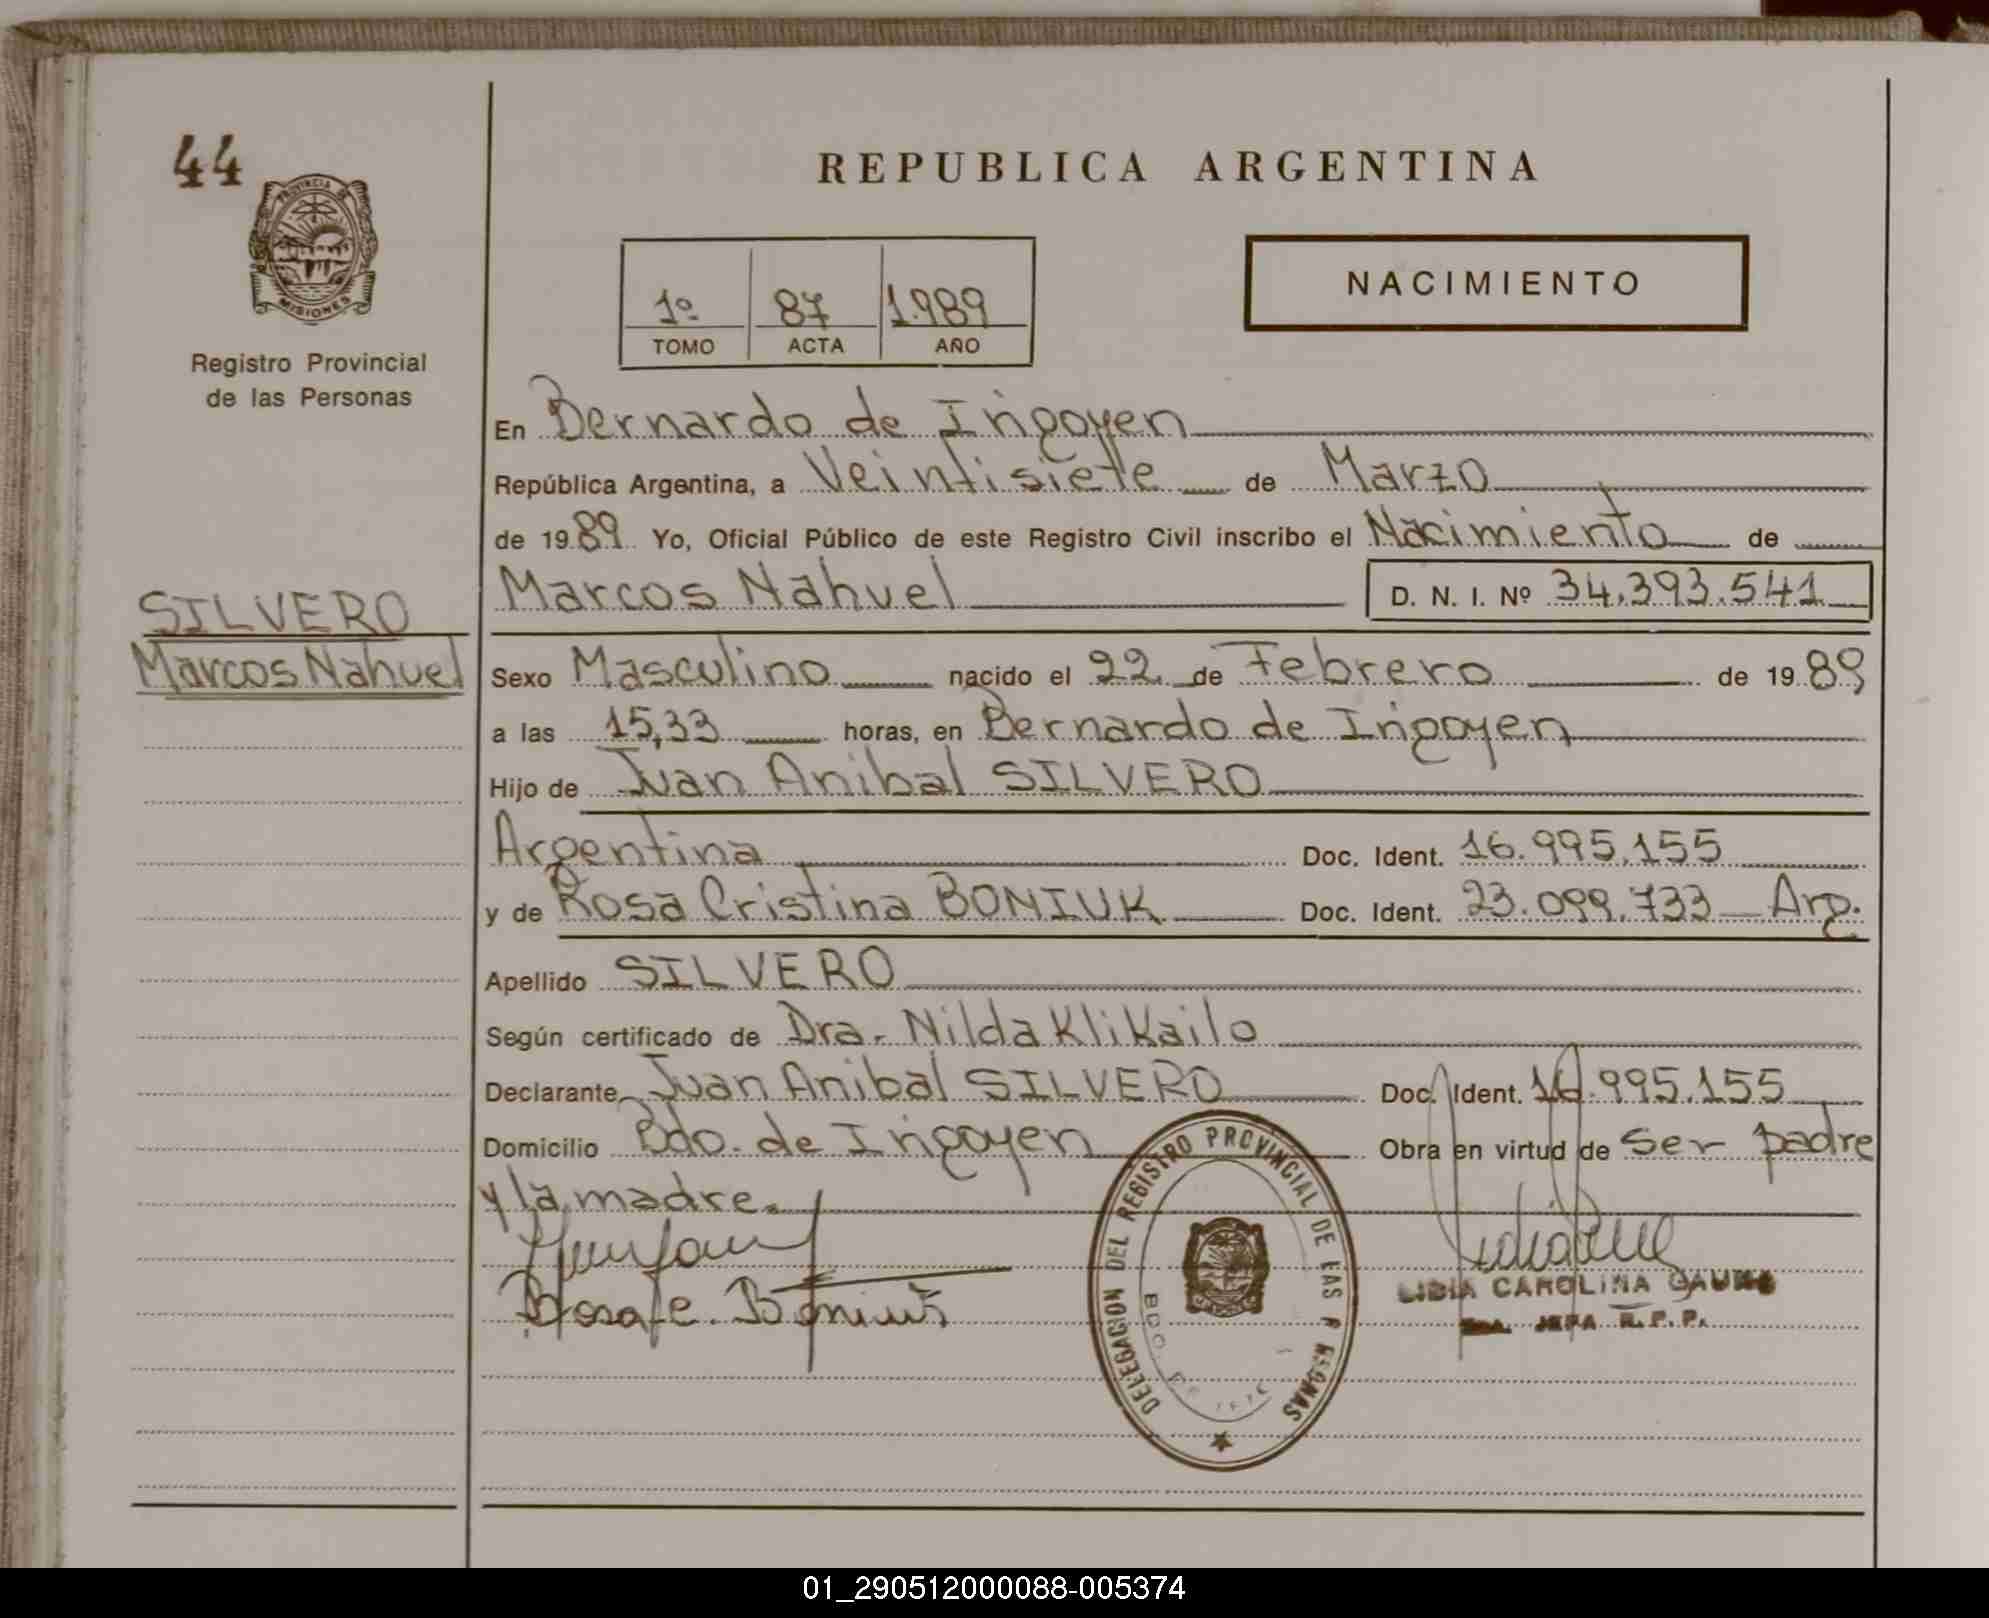 44
PROVINCIA DE
MISIONES
Registro Provincial
de las Personas
SILVERO
Marcos Nahuel
REPUBLICA ARGENTINA
1º 87 1.989
TOMO ACTA AÑO
NACIMIENTO
En Bernardo de Irigoyen
República Argentina, a Veintisiete de Marzo
de 1989 Yo, Oficial Público de este Registro Civil inscribo el Nacimiento de
Marcos Nahuel D. N. I. Nº 34.393.541
Sexo Masculino nacido el 22 de Febrero de 1989
a las 15,33 horas, en Bernardo de Irigoyen
Hijo de Juan Anibal SILVERO
Argentina Doc. Ident. 16.995.155
y de Rosa Cristina BONIUK Doc. Ident. 23.099.733 Arg.
Apellido SILVERO
Según certificado de Dra. Nilda Klikailo
Declarante Juan Anibal SILVERO Doc. Ident. 16.995.155
Domicilio Bdo. de Irigoyen Obra en virtud de ser padre
y la madre.
Rosa C. Boniuk
DELEGACION DEL REGISTRO PROVINCIAL DE LAS PERSONAS
BDO. DE
LIDIA CAROLINA
JEFA R. P. P.
01_290512000088-005374